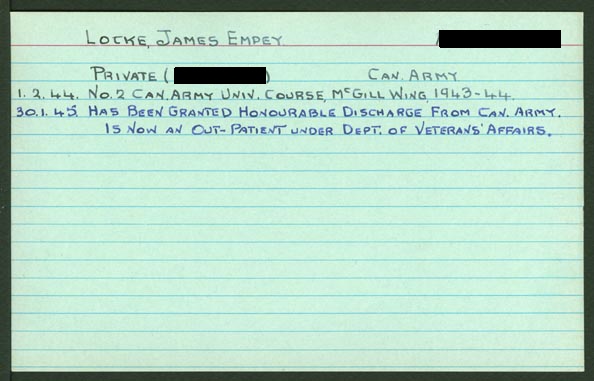 LOCKE, JAMES EMPEY.
PRIVATE ( ) CAN. ARMY
1.2.44. NO.2 CAN. ARMY UNIV. COURSE, MCGILL WING, 1943-44.
30.1.45. HAS BEEN GRANTED HONOURABLE DISCHARGE FROM CAN. ARMY.
IS NOW AN OUT-PATIENT UNDER DEPT. OF VETERANS' AFFAIRS.